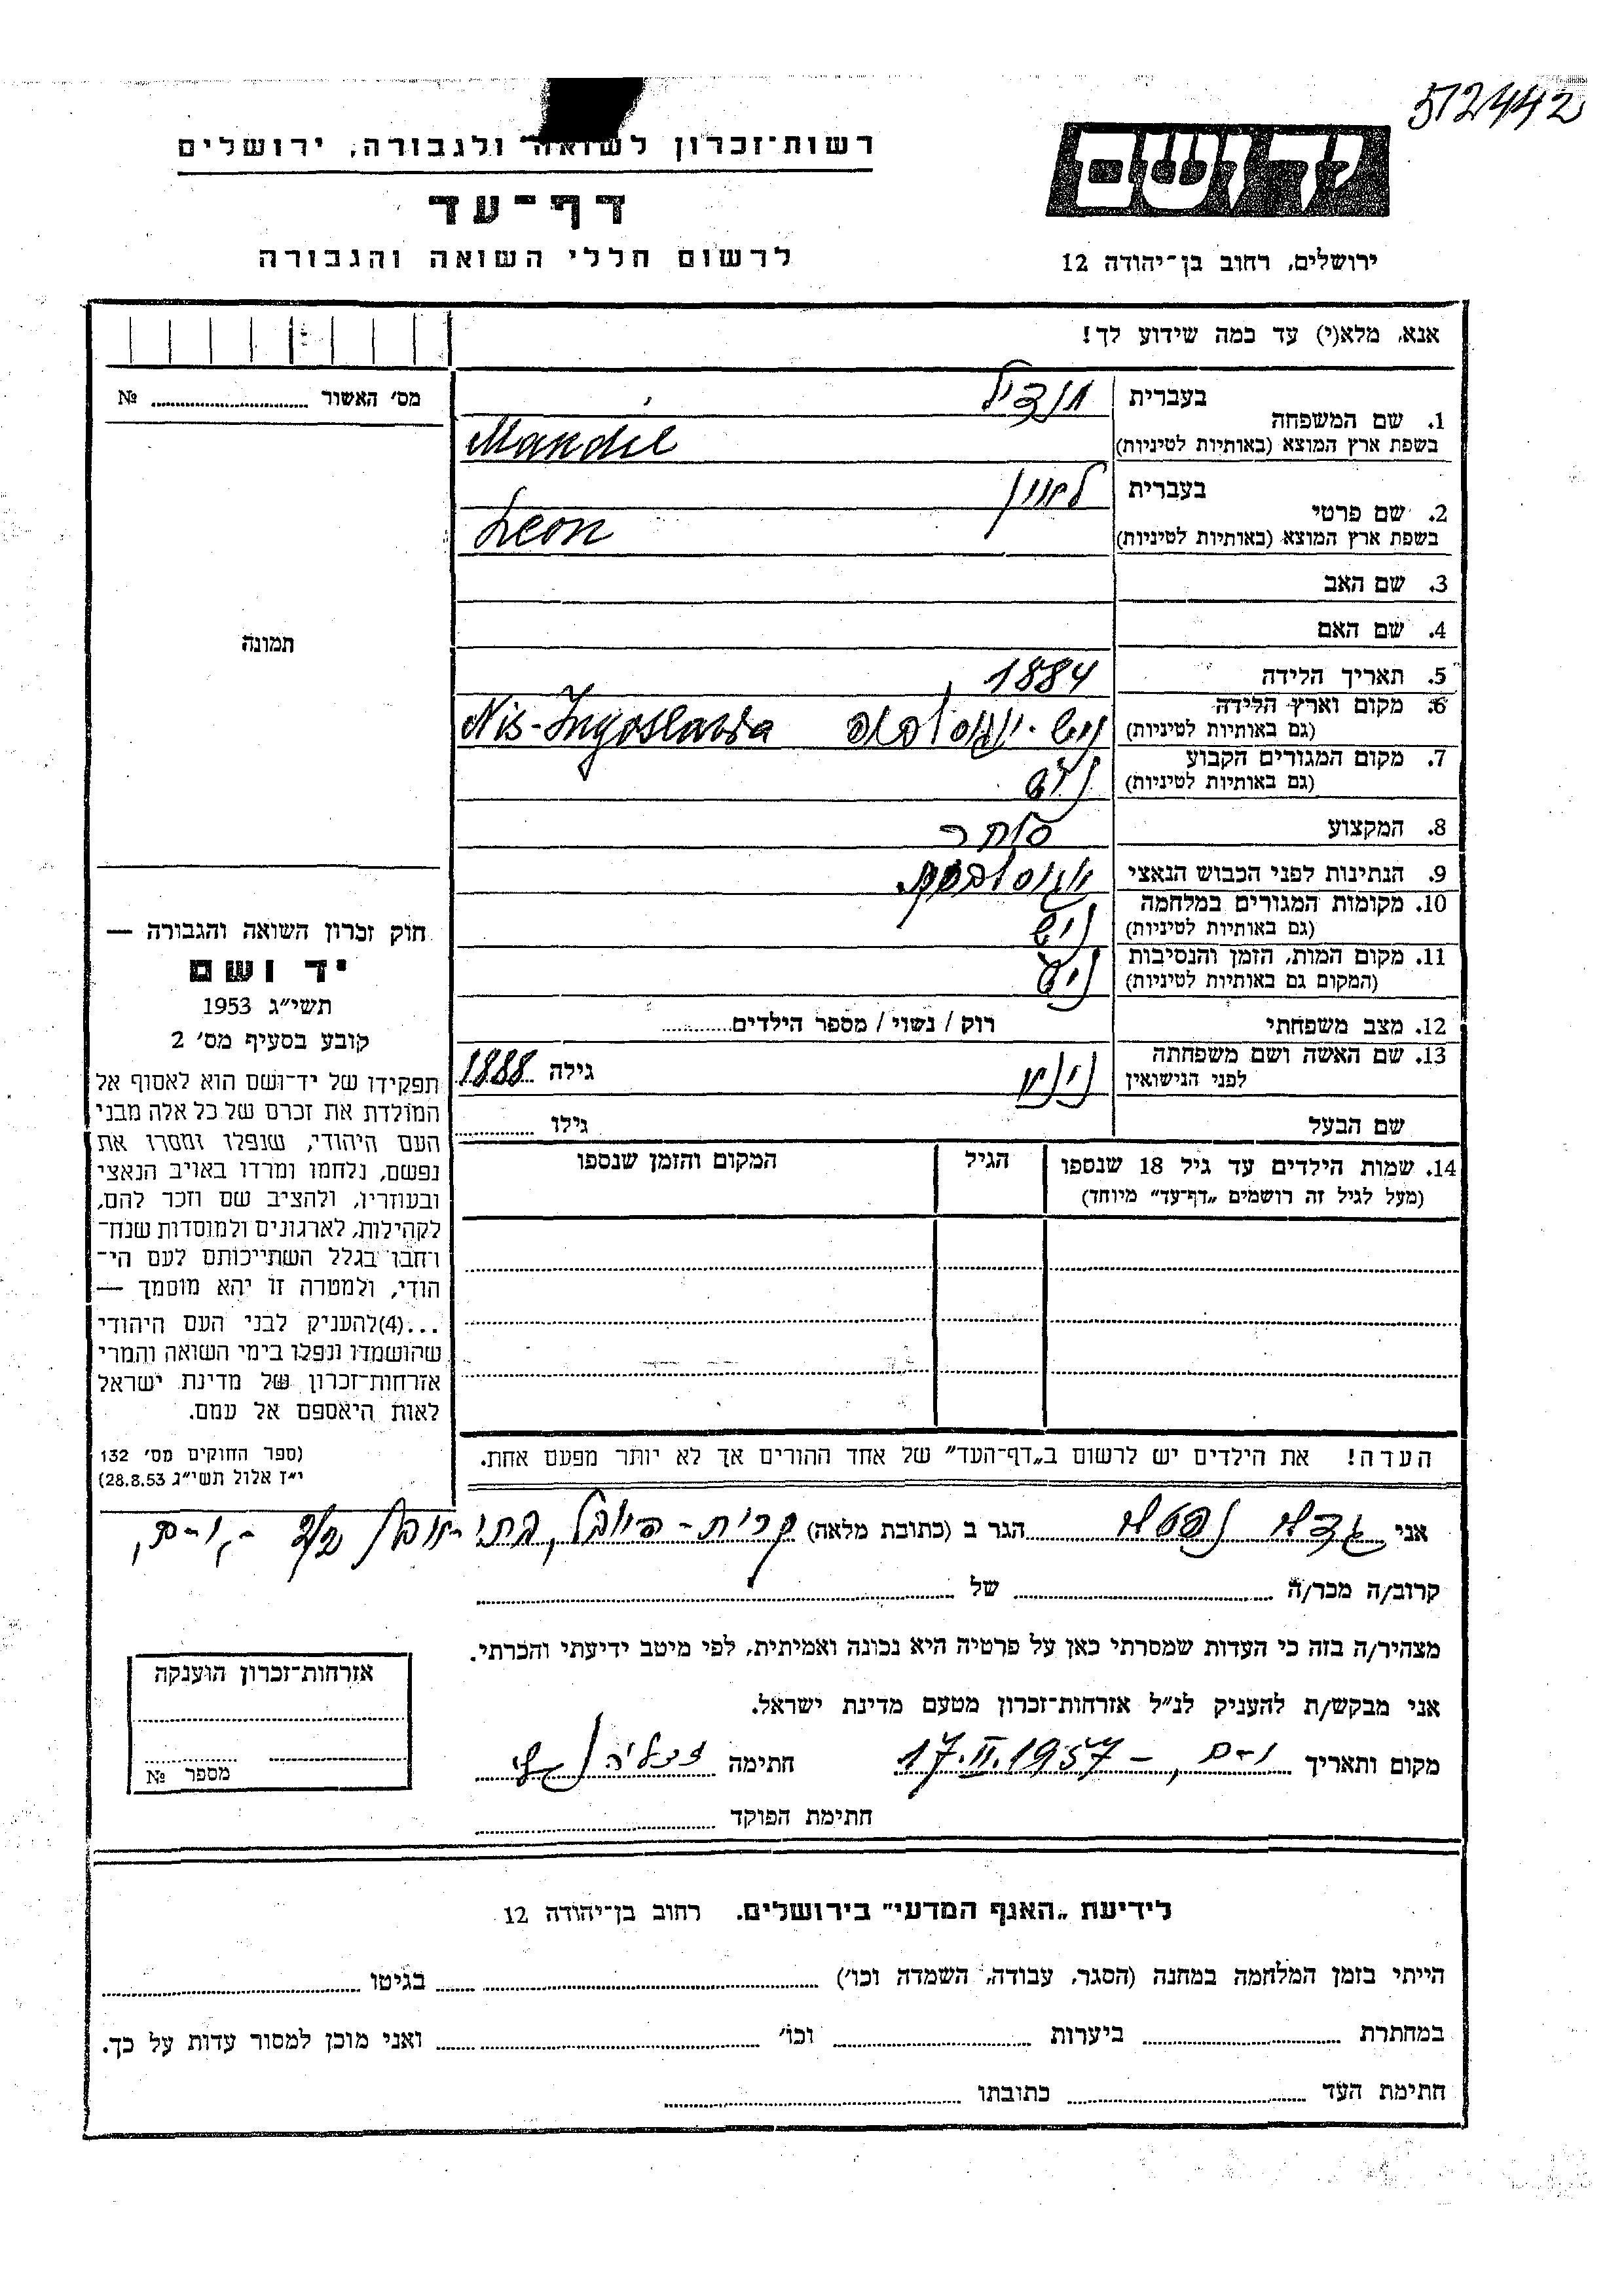 512442
יד ושם
ירושלים, רחוב בן־יהודה 12
רשות־זכרון לשואה ולגבורה, ירושלים
דף־עד
לרשום חללי השואה והגבורה
אנא, מלא(י) עד כמה שידוע לך!
1. שם המשפחה
בעברית מנדיל
בשפת ארץ המוצא (באותיות לטיניות) Mandil
2. שם פרטי
בעברית לאון
בשפת ארץ המוצא (באותיות לטיניות) Leon
3. שם האב
4. שם האם
5. תאריך הלידה 1884
6. מקום וארץ הלידה
(גם באותיות לטיניות) ניש - יוגוסלביה Nis-Jugoslavia
7. מקום המגורים הקבוע
(גם באותיות לטיניות) ניש
8. המקצוע סוחר
9. הנתינות לפני הכבוש הנאצי יוגוסלבית
10. מקומות המגורים במלחמה
(גם באותיות לטיניות) ניש
11. מקום המות, הזמן והנסיבות
(המקום גם באותיות לטיניות) ניש
12. מצב משפחתי רוק / נשוי / מספר הילדים
13. שם האשה ושם משפחתה
לפני הנישואין גילה 1888
שם הבעל גילו
14. שמות הילדים עד גיל 18 שנספו
(מעל לגיל זה רושמים „דף־עד” מיוחד)
הגיל
המקום והזמן שנספו
הערה! את הילדים יש לרשום ב„דף־העד” של אחד ההורים אך לא יותר מפעם אחת.
מס׳ האשור № 
תמונה
חוק זכרון השואה והגבורה —
יד ושם
תשי״ג 1953
קובע בסעיף מס׳ 2
תפקידו של יד־ושם הוא לאסוף אל
המולדת את זכרם של כל אלה מבני
העם היהודי, שנפלו ומסרו את
נפשם, נלחמו ומרדו באויב הנאצי
ובעוזריו, ולהציב שם וזכר להם,
לקהילות, לארגונים ולמוסדות שנח־
רבו בגלל השתייכותם לעם הי־
הודי, ולמטרה זו יהא מוסמך —
...(4)להעניק לבני העם היהודי
שהושמדו ונפלו בימי השואה והמרי
אזרחות־זכרון של מדינת ישראל
לאות היאספם אל עמם.
(ספר החוקים מס׳ 132
י״ז אלול תשי״ג 28.8.53)
אני הגר ב (כתובת מלאה) קרית-היובל,
קרוב/ה מכר/ה של
מצהיר/ה בזה כי העדות שמסרתי כאן על פרטיה היא נכונה ואמיתית, לפי מיטב ידיעתי והכרתי.
אני מבקש/ת להעניק לנ״ל אזרחות־זכרון מטעם מדינת ישראל.
מקום ותאריך י-ם, - 17.II.1957 חתימה
חתימת הפוקד
אזרחות־זכרון הוענקה
מספר №
לידיעת „האגף המדעי” בירושלים. רחוב בן־יהודה 12
הייתי בזמן המלחמה במחנה (הסגר, עבודה, השמדה וכו׳) בגיטו
במחתרת ביערות וכו׳ ואני מוכן למסור עדות על כך.
חתימת העד כתובתו